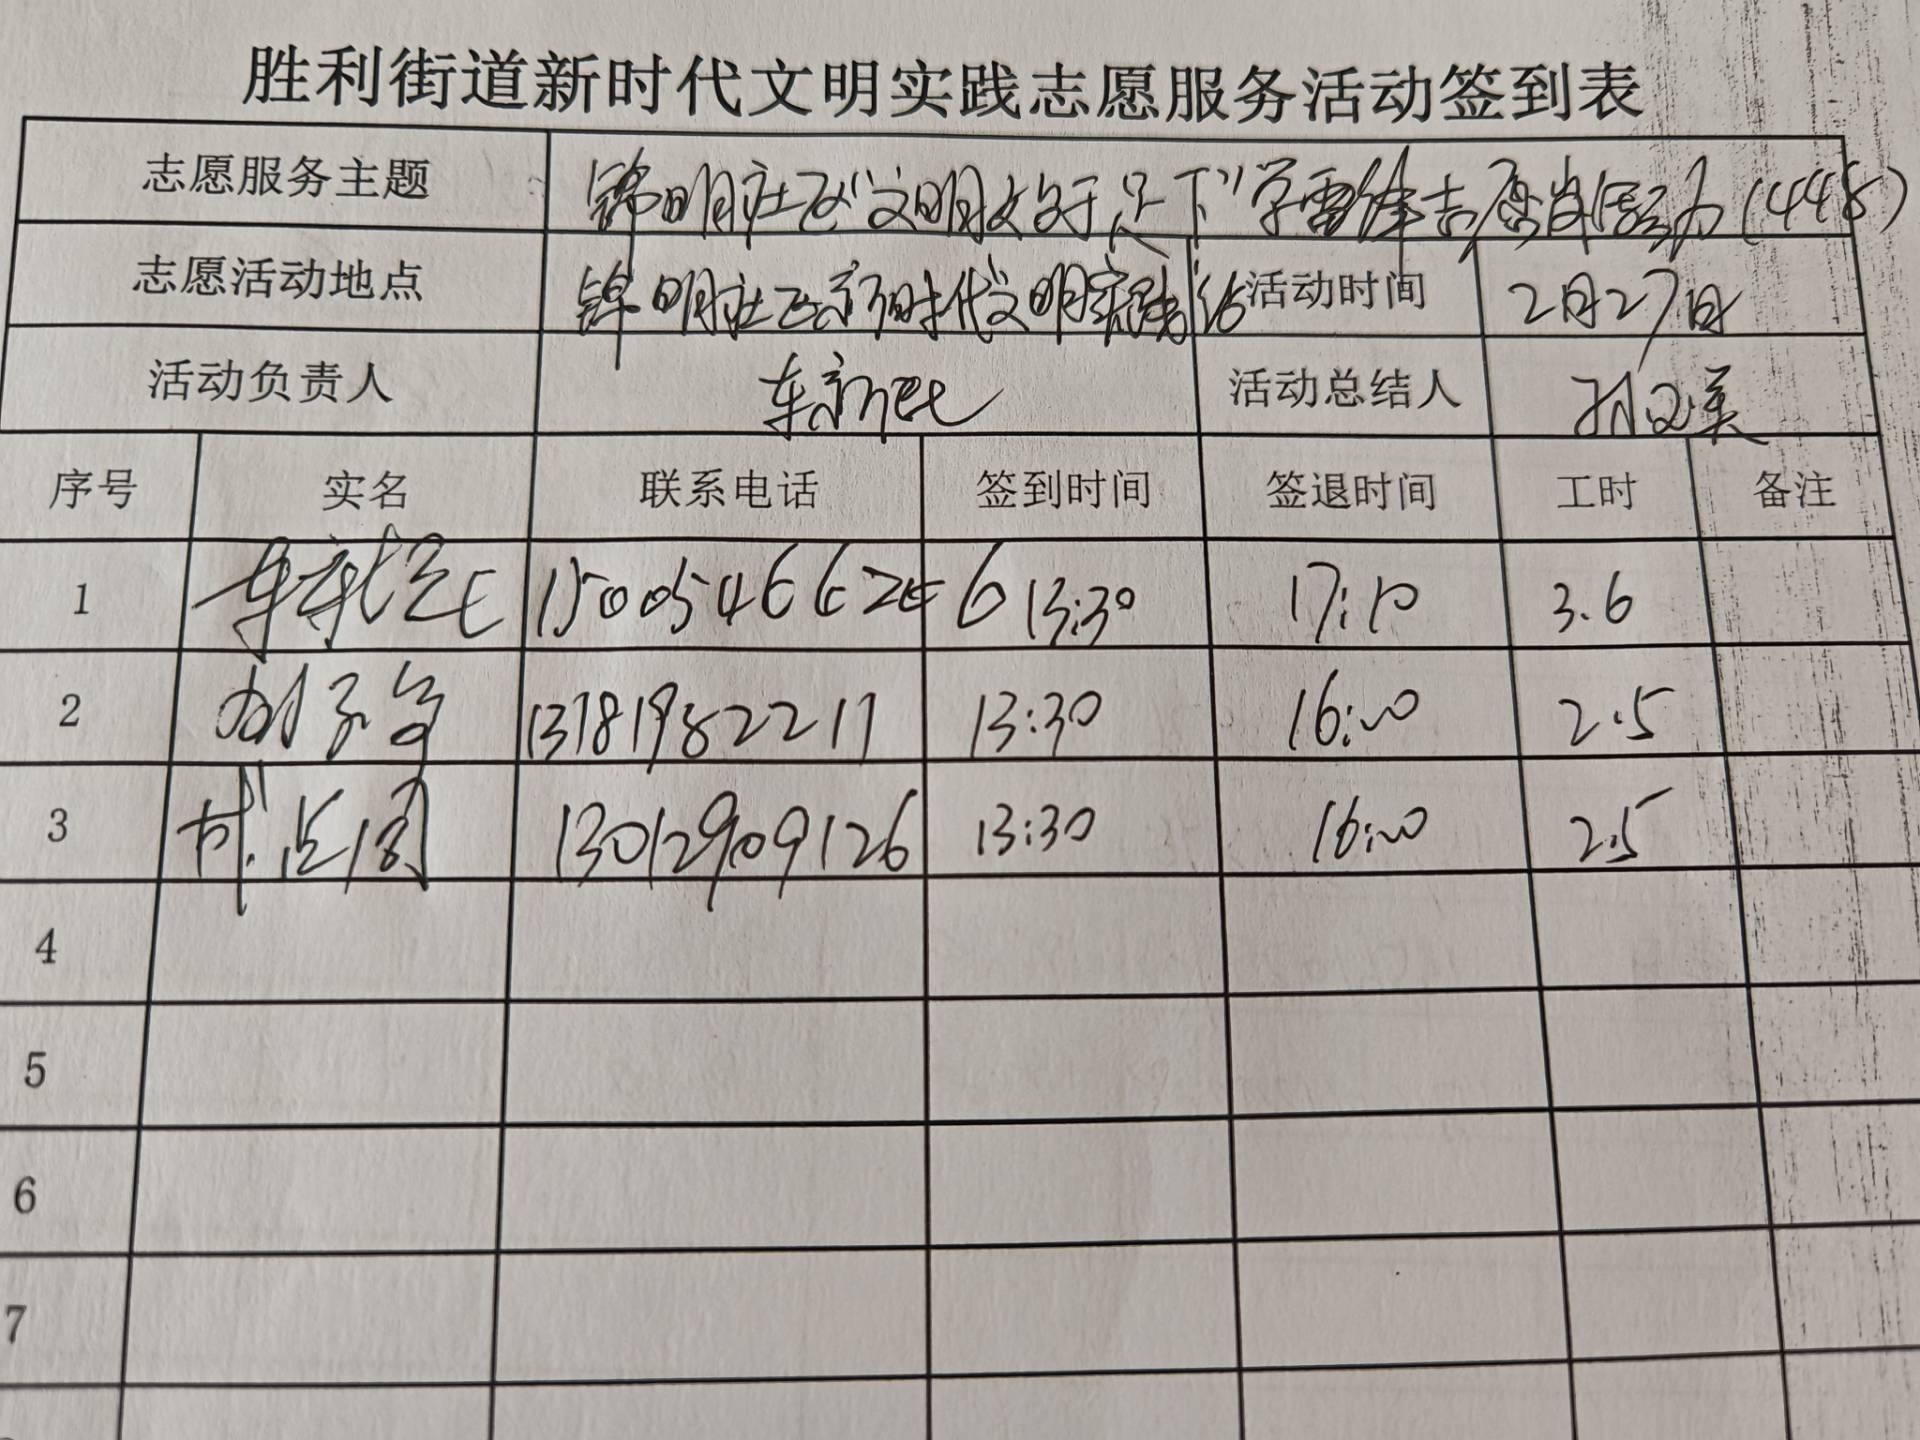 胜利街道新时代文明实践志愿服务活动签到表
志愿服务主题 锦明社区"文明始于足下"学雷锋志愿服务活动(448)
志愿活动地点 锦明社区新时代文明实践站 活动时间 2月27日
活动负责人 车新 活动总结人 孙文美
序号 实名 联系电话 签到时间 签退时间 工时 备注
1 车新 13:30 17:10 3.6
2 13:30 16:00 2.5
3 13012909126 13:30 16:00 2.5
4
5
6
7